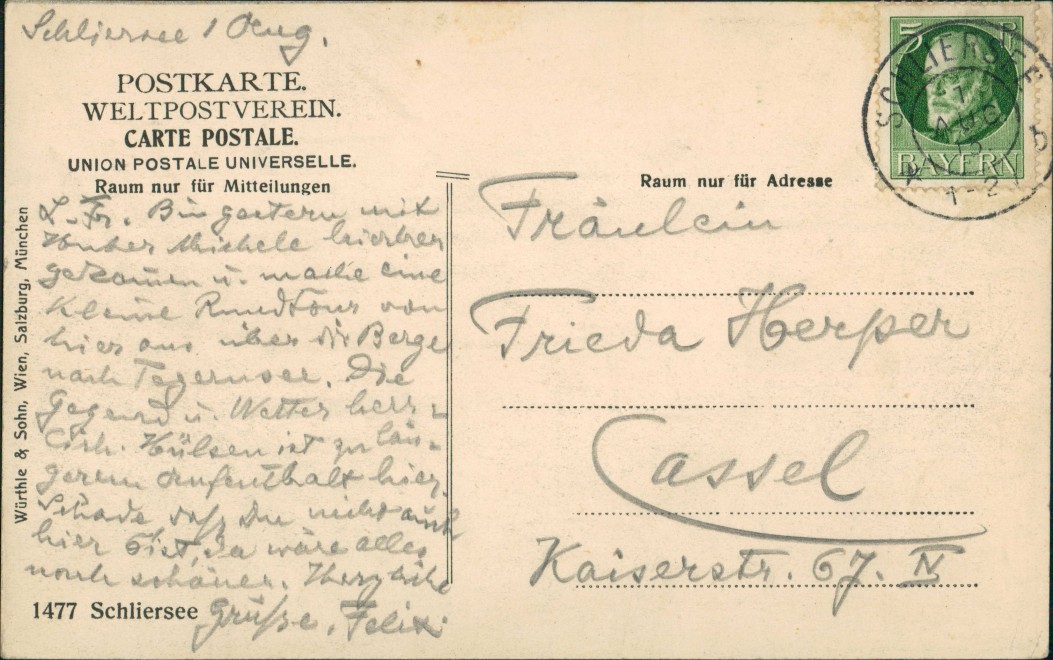 Schliersee 1 Aug.
POSTKARTE.
WELTPOSTVEREIN.
CARTE POSTALE.
UNION POSTALE UNIVERSELLE.
Raum nur für Mitteilungen
L. Fr. Bin gestern mit
Huber Michele hierher
gekommen u. mache eine
kleine Rundtour von
hier aus über die Berge
nach Tegernsee. Die
Gegend u. Wetter herr-
lich. Hülsen ist zu län-
gerem Aufenthalt hier.
Schade daß Du nicht auch
hier bist, da wäre alles
noch schöner. Herzliche
Grüße, Felix
1477 Schliersee
Würthle & Sohn, Wien, Salzburg, München
5 P
BAYERN
SCHLIERSEE
1
AUG
1-2
b
Raum nur für Adresse
Fräulein
Frieda Herper
Cassel
Kaiserstr. 67. IV